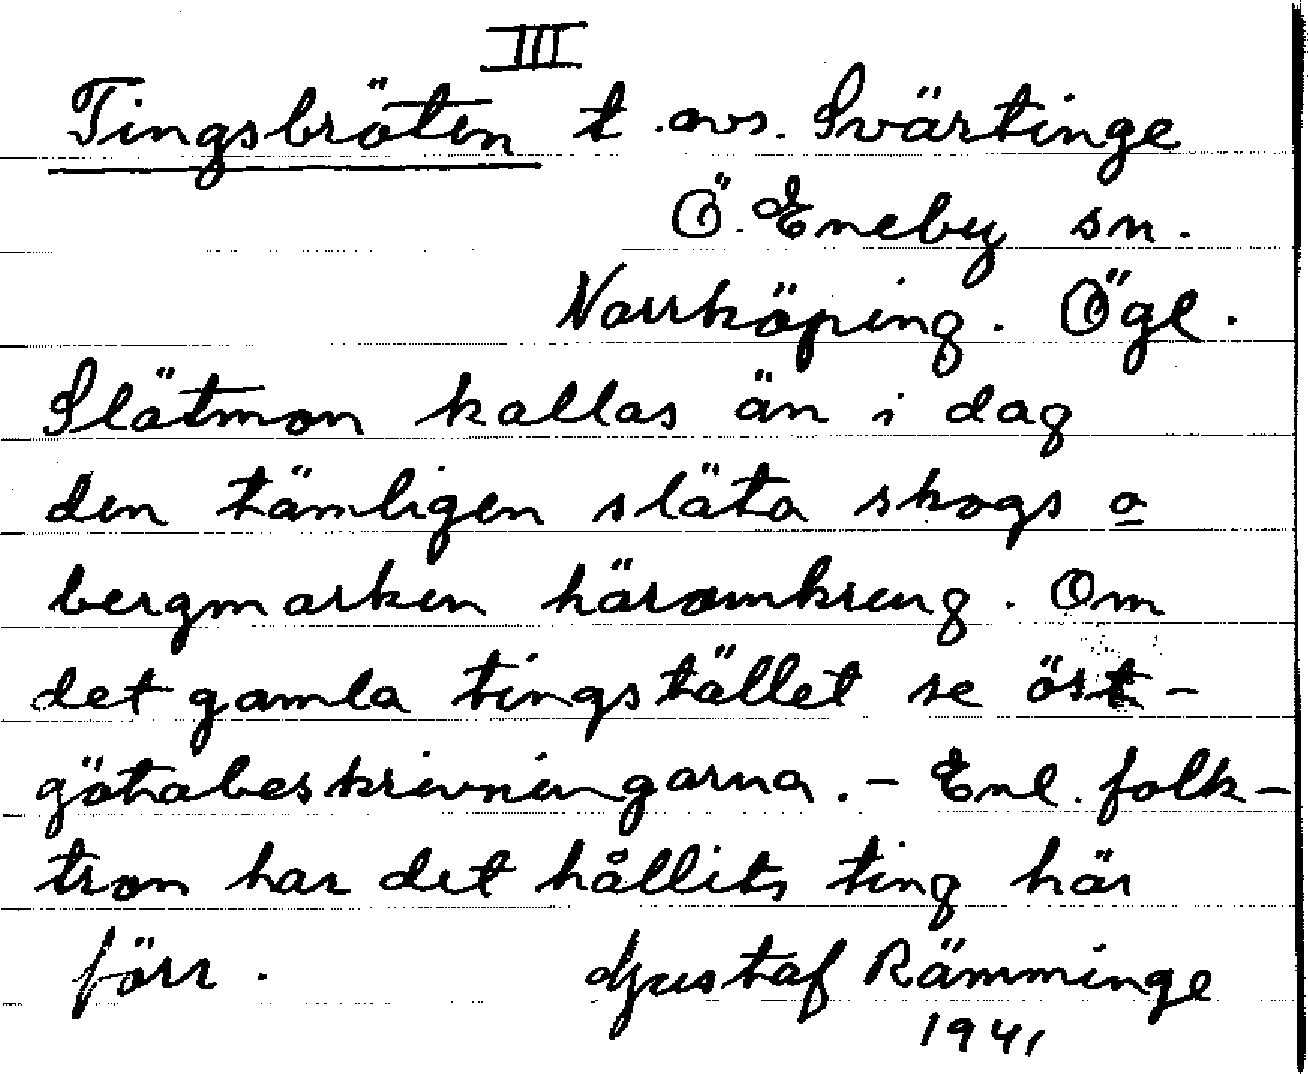 III
Tingsbröten t. avs. Svärtinge
Ö. Eneby sn.
Norrköping. Ögl.
Slätmon kallas än i dag
den tämligen släta skogs o
bergmarken häromkring. Om
det gamla tingstället se öst-
götabeskrivningarna. - Enl. folk-
tron har det hållits ting här
förr. Gustaf Rämminge
1941